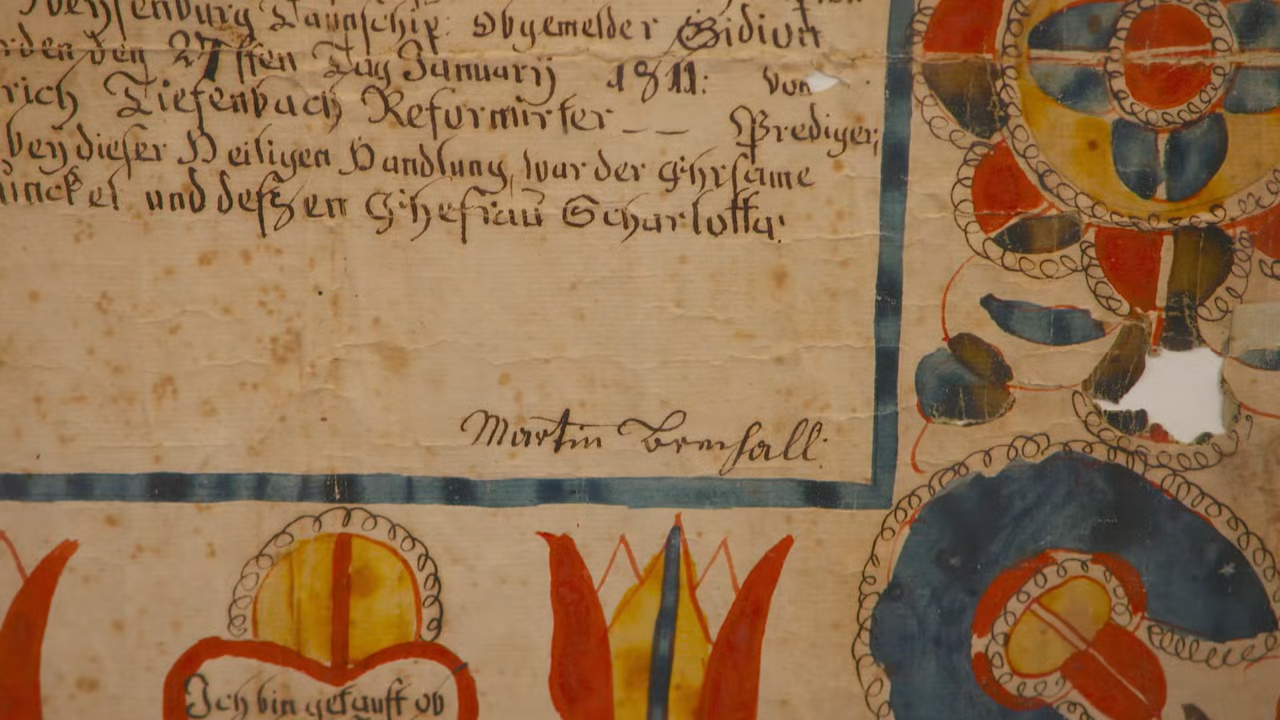 Taunschip: Obgemelder Gidion
den 27sten Tag Januarij 1811: von
rich Tiefenbach Reformirter__ __ Prediger,
bey dieser Heiligen Handlung, war der Ehrsame
inckel und deßen Ehefrau Scharlotta:
Martin Brechall:
Ich bin getauft ob